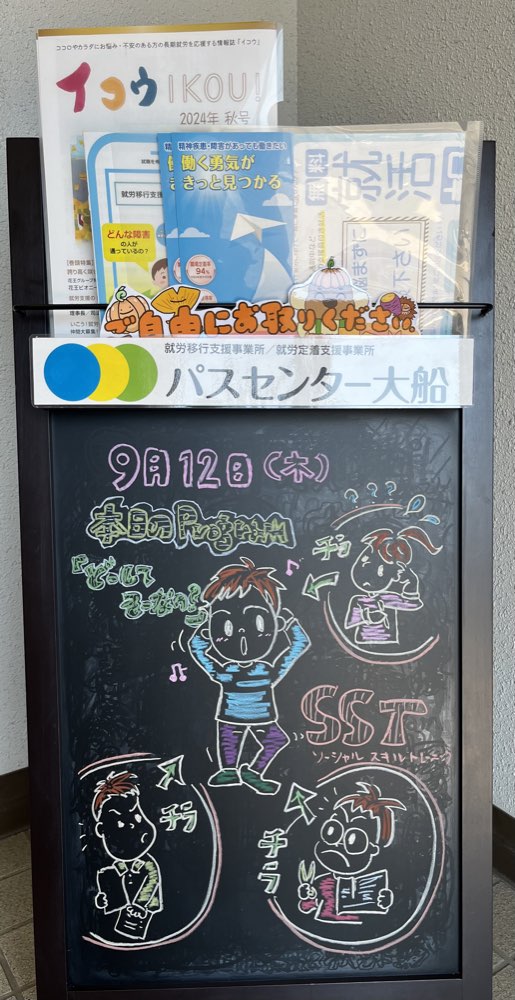 ココロやカラダにお悩み・不安のある方の長期就労を応援する情報誌『イコウ』
イコウ IKOU!
2024年 秋号
精神疾患・障害があっても働きたい
働く勇気が
きっと見つかる
94%
就労移行支援
どんな障害
の人が
通っているの?
無料
就活
ご自由にお取りください。
就労移行支援事業所/就労定着支援事業所
パスセンター大船
9月12日(木)
本日のProgram
SST
ソーシャル スキル トレーニング
チラ
チラ
チラ